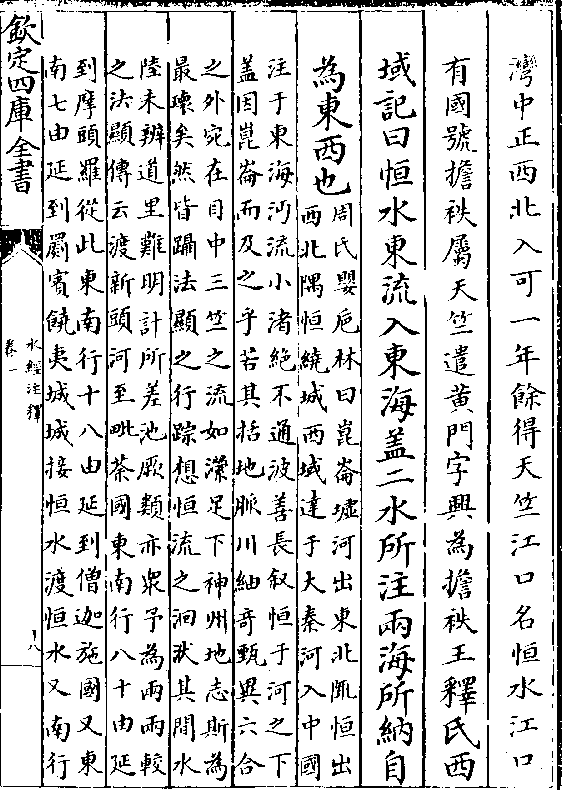 灣中正西北入可一年餘得天竺江口名恒水江口
有國號擔袟屬天竺遣黃門字興為擔袟王釋氏西
域記曰恒水東流入東海盖二水所注兩海所納自
為東西也
周氏嬰巵林曰崑崙墟河出東北陬恒出
西北隅恒繞城西域達于大秦河入中國
注于東海沔流小渚絶不通波善長叙恒于河之下
盖因崑崙而及之乎若其括地脈川紬奇甄異六合
之外宛在目中三竺之流如濼足下神州地志斯為
最瓌矣然皆躡法顯之行踪想恒流之洄洑其間水
陸未辨道里難明計所差池厥類亦衆予為兩兩較
之法顯傳云渡新頭河至毗荼國東南行八十由延
到摩頭羅從此東南行十八由延到僧迦施國又東
南七由延到罽賓饒夷城城接恒水渡恒水又南行
欽定四庫全書
水經注釋
卷一
十八